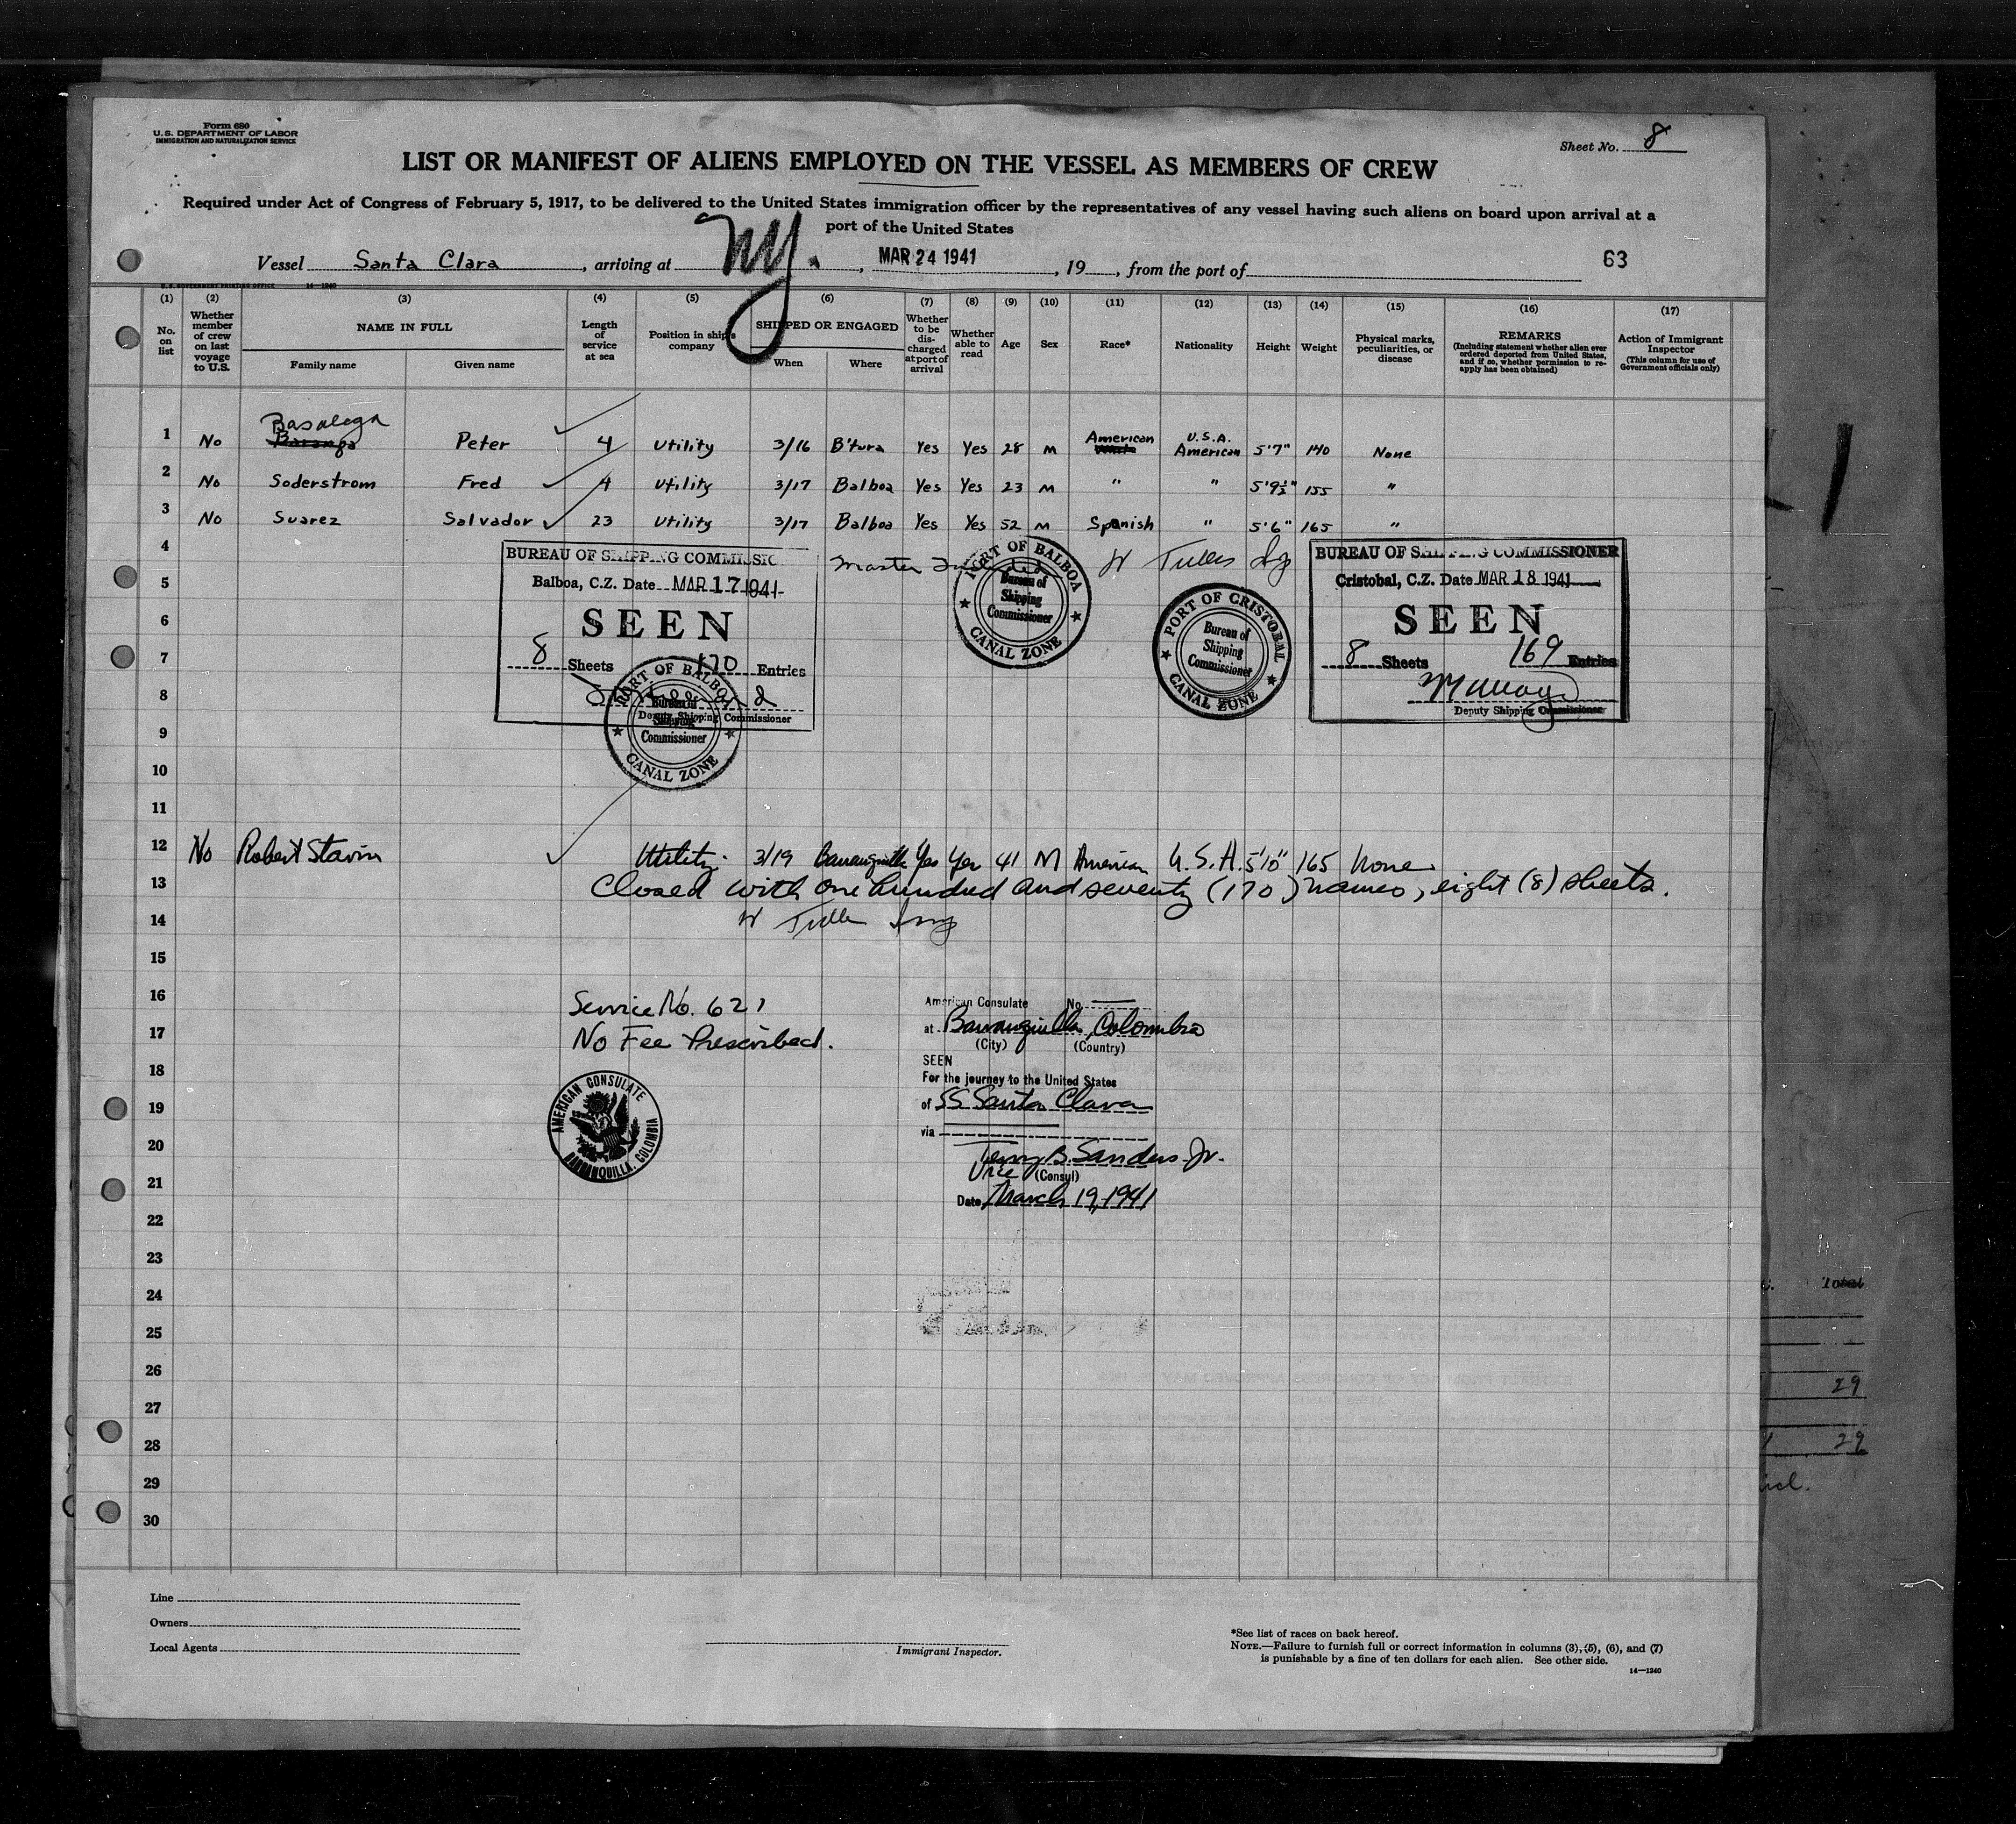 Form 680
U.S. DEPARTMENT OF LABOR
IMMIGRATION AND NATURALIZATION SERVICE
Sheet No. 8
LIST OR MANIFEST OF ALIENS EMPLOYED ON THE VESSEL AS MEMBERS OF CREW
Required under Act of Congress of February 5, 1917, to be delivered to the United States immigration officer by the representatives of any vessel having such aliens on board upon arrival at a
port of the United States
Vessel Santa Clara, arriving at NY., MAR 24 1941, 19, from the port of
63
U.S. GOVERNMENT PRINTING OFFICE 14-1240
(1) (2) (3) (4) (5) (6) (7) (8) (9) (10) (11) (12) (13) (14) (15) (16) (17)
No. on list
Whether member of crew on last voyage to U.S.
NAME IN FULL
Family name
Given name
Length of service at sea
Position in ship's company
SHIPPED OR ENGAGED
When
Where
Whether to be discharged at port of arrival
Whether able to read
Age
Sex
Race*
Nationality
Height
Weight
Physical marks, peculiarities, or disease
REMARKS
(Including statement whether alien ever ordered deported from United States, and if so, whether permission to re-apply has been obtained)
Action of Immigrant Inspector
(This column for use of Government officials only)
Basalega
1 No Peter 4 Utility 3/16 B'tura Yes Yes 28 M American U.S.A. American 5'7" 140 None
2 No Soderstrom Fred 4 Utility 3/17 Balboa Yes Yes 23 M " " 5'9½" 155 "
3 No Suarez Salvador 23 Utility 3/17 Balboa Yes Yes 52 M Spanish " 5'6" 165 "
4
5
6
7
8
9
10
11
BUREAU OF SHIPPING COMMISSIO
Balboa, C.Z. Date MAR 17 1941
SEEN
8 Sheets 170 Entries
Deputy Shipping Commissioner
PORT OF BALBOA
Bureau of
Shipping
Commissioner
CANAL ZONE
Master
PORT OF BALBOA
Bureau of
Shipping
Commissioner
CANAL ZONE
PORT OF CRISTOBAL
Bureau of
Shipping
Commissioner
CANAL ZONE
BUREAU OF SHIPPING COMMISSIONER
Cristobal, C.Z. Date MAR 18 1941
SEEN
8 Sheets 169 Entries
Deputy Shipping Commissioner
12 No Robert Stavin Utility 3/19 Barranquilla Yes Yes 41 M American U.S.A. 5'10" 165 None
13 Closed with one hundred and seventy (170) names, eight (8) sheets.
14
15
16
17
18
19
20
21
22
23
24
25
26
27
28
29
30
Service No. 621
No Fee Prescribed.
AMERICAN CONSULATE
BARRANQUILLA, COLOMBIA
American Consulate No.
at Barranquilla, Colombia
(City) (Country)
SEEN
For the journey to the United States
of SS Santa Clara
via
Terry B. Sanders Jr.
Vice (Consul)
Date March 19, 1941
Total
29
29
Line
Owners
Local Agents
Immigrant Inspector.
*See list of races on back hereof.
NOTE.—Failure to furnish full or correct information in columns (3), (5), (6), and (7)
is punishable by a fine of ten dollars for each alien. See other side.
14—1240